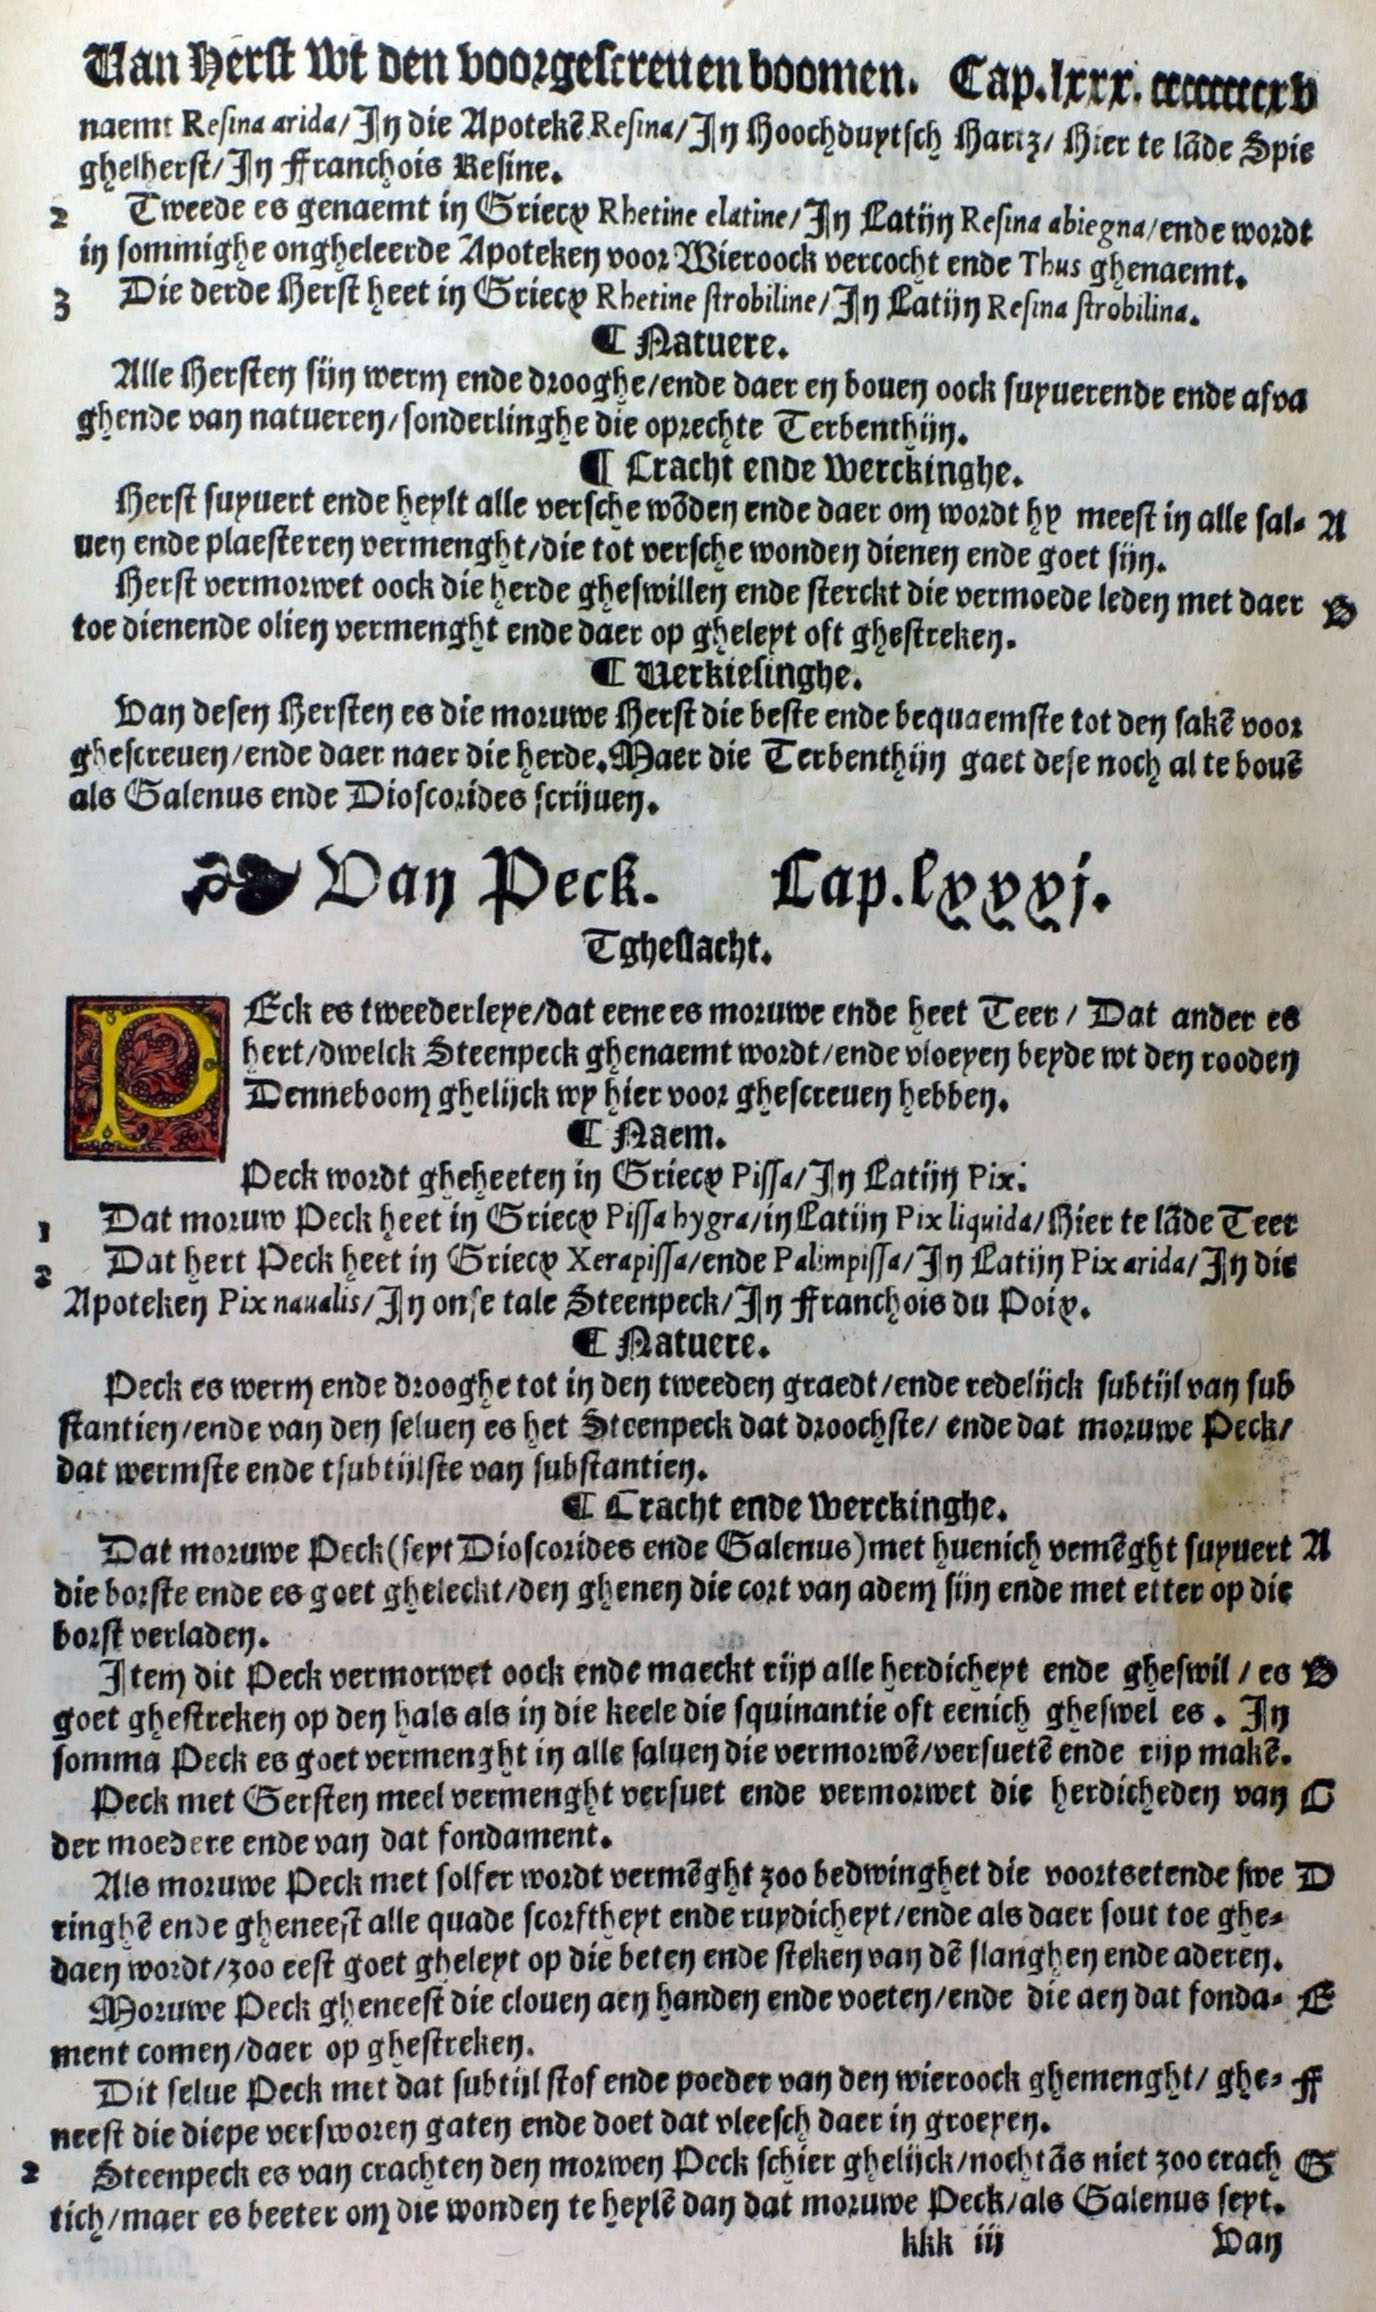 Van Herst wt den voorgescreuen boomen. Cap.lxxx. ccccccccxv
naemt Resina arida/In die Apotekē Resina/In Hoochduytsch Hartz/Hier te lāde Spie
ghelherst/In Franchois Resine.
2 Tweede es genaemt in Griecx Rhetine elatine/In Latijn Resina abiegna/ende wordt
in sommighe ongheleerde Apoteken voor Wieroock vercocht ende Thus ghenaemt.
3 Die derde Herst heet in Griecx Rhetine strobiline/In Latijn Resina strobilina.
¶ Natuere.
Alle Hersten sijn werm ende drooghe/ende daer en bouen oock suyuerende ende afva
ghende van natueren/sonderlinghe die oprechte Terbenthijn.
¶ Cracht ende werckinghe.
Herst suyuert ende heylt alle versche wōden ende daer om wordt hy meest in alle sal- A
uen ende plaesteren vermenght/die tot versche wonden dienen ende goet sijn.
Herst vermorwet oock die herde gheswillen ende sterckt die vermoede leden met daer B
toe dienende olien vermenght ende daer op gheleyt oft ghestreken.
¶ Verkiesinghe.
Van desen Hersten es die moruwe Herst die beste ende bequaemste tot den sakē voor
ghescreuen/ende daer naer die herde. Maer die Terbenthijn gaet dese noch al te bouē
als Galenus ende Dioscorides scrijuen.
Van Peck. Cap.lxxxj.
Tgheslacht.
PEck es tweederleye/dat eene es moruwe ende heet Teer/Dat ander es
hert/dwelck Steenpeck ghenaemt wordt/ende vloeyen beyde wt den rooden
Denneboom ghelijck wy hier voor ghescreuen hebben.
¶ Naem.
Peck wordt gheheeten in Griecx Pissa/In Latijn Pix.
1 Dat moruw Peck heet in Griecx Pissa hygra/in Latijn Pix liquida/Hier te lāde Teer
2 Dat hert Peck heet in Griecx Xerapissa/ende Palimpissa/In Latijn Pix arida/In die
Apoteken Pix naualis/In onse tale Steenpeck/In Franchois du Poix.
¶ Natuere.
Peck es werm ende drooghe tot in den tweeden graedt/ende redelijck subtijl van sub
stantien/ende van den seluen es het Steenpeck dat droochste/ende dat moruwe Peck/
dat wermste ende tsubtijlste van substantien.
¶ Cracht ende werckinghe.
Dat moruwe Peck (seyt Dioscorides ende Galenus) met huenich vemēght suyuert A
die borste ende es goet gheleckt/den ghenen die cort van adem sijn ende met etter op die
borst verladen.
Item dit Peck vermorwet oock ende maeckt rijp alle herdicheyt ende gheswil/es B
goet ghestreken op den hals als in die keele die squinantie oft eenich gheswel es. In
somma Peck es goet vermenght in alle saluen die vermorwē/versuetē ende rijp makē.
Peck met Gersten meel vermenght versuet ende vermorwet die herdicheden van C
der moedere ende van dat fondament.
Als moruwe Peck met solfer wordt vermēght zoo bedwinghet die voortsetende swe D
ringhē ende gheneest alle quade scorftheyt ende ruydicheyt/ende als daer sout toe ghe-
daen wordt/zoo eest goet gheleyt op die beten ende steken van dē slanghen ende aderen.
Moruwe Peck gheneest die clouen aen handen ende voeten/ende die aen dat fonda- E
ment comen/daer op ghestreken.
Dit selue Peck met dat subtijl stof ende poeder van den wieroock ghemenght/ghe- F
neest die diepe versworen gaten ende doet dat vleesch daer in groeyen.
2 Steenpeck es van crachten den morwen Peck schier ghelijck/nochtās niet zoo crach G
tich/maer es beeter om die wonden te heylē dan dat moruwe Peck/als Galenus seyt.
kkk iij Van